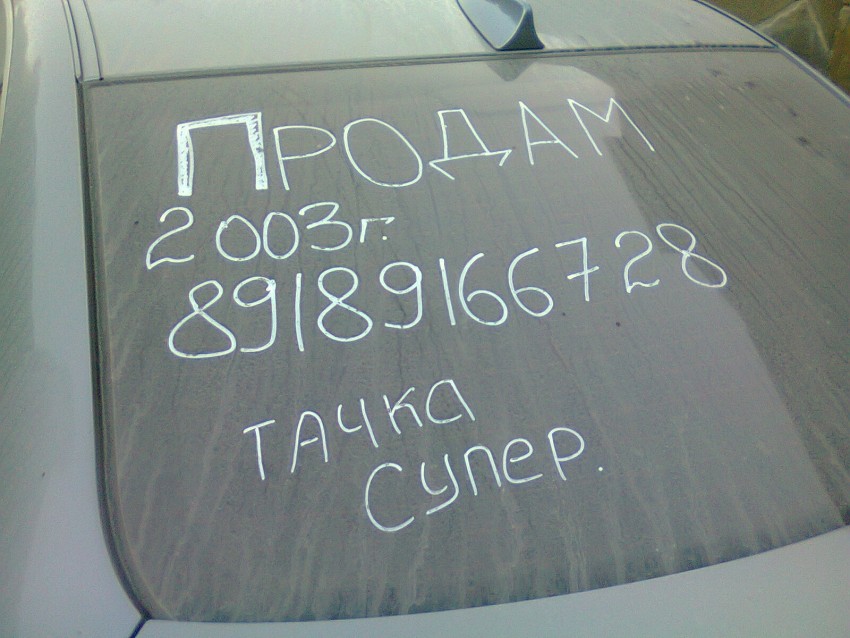 ПРОДАМ
2003г.
89189166728
ТАЧКА
Супер.